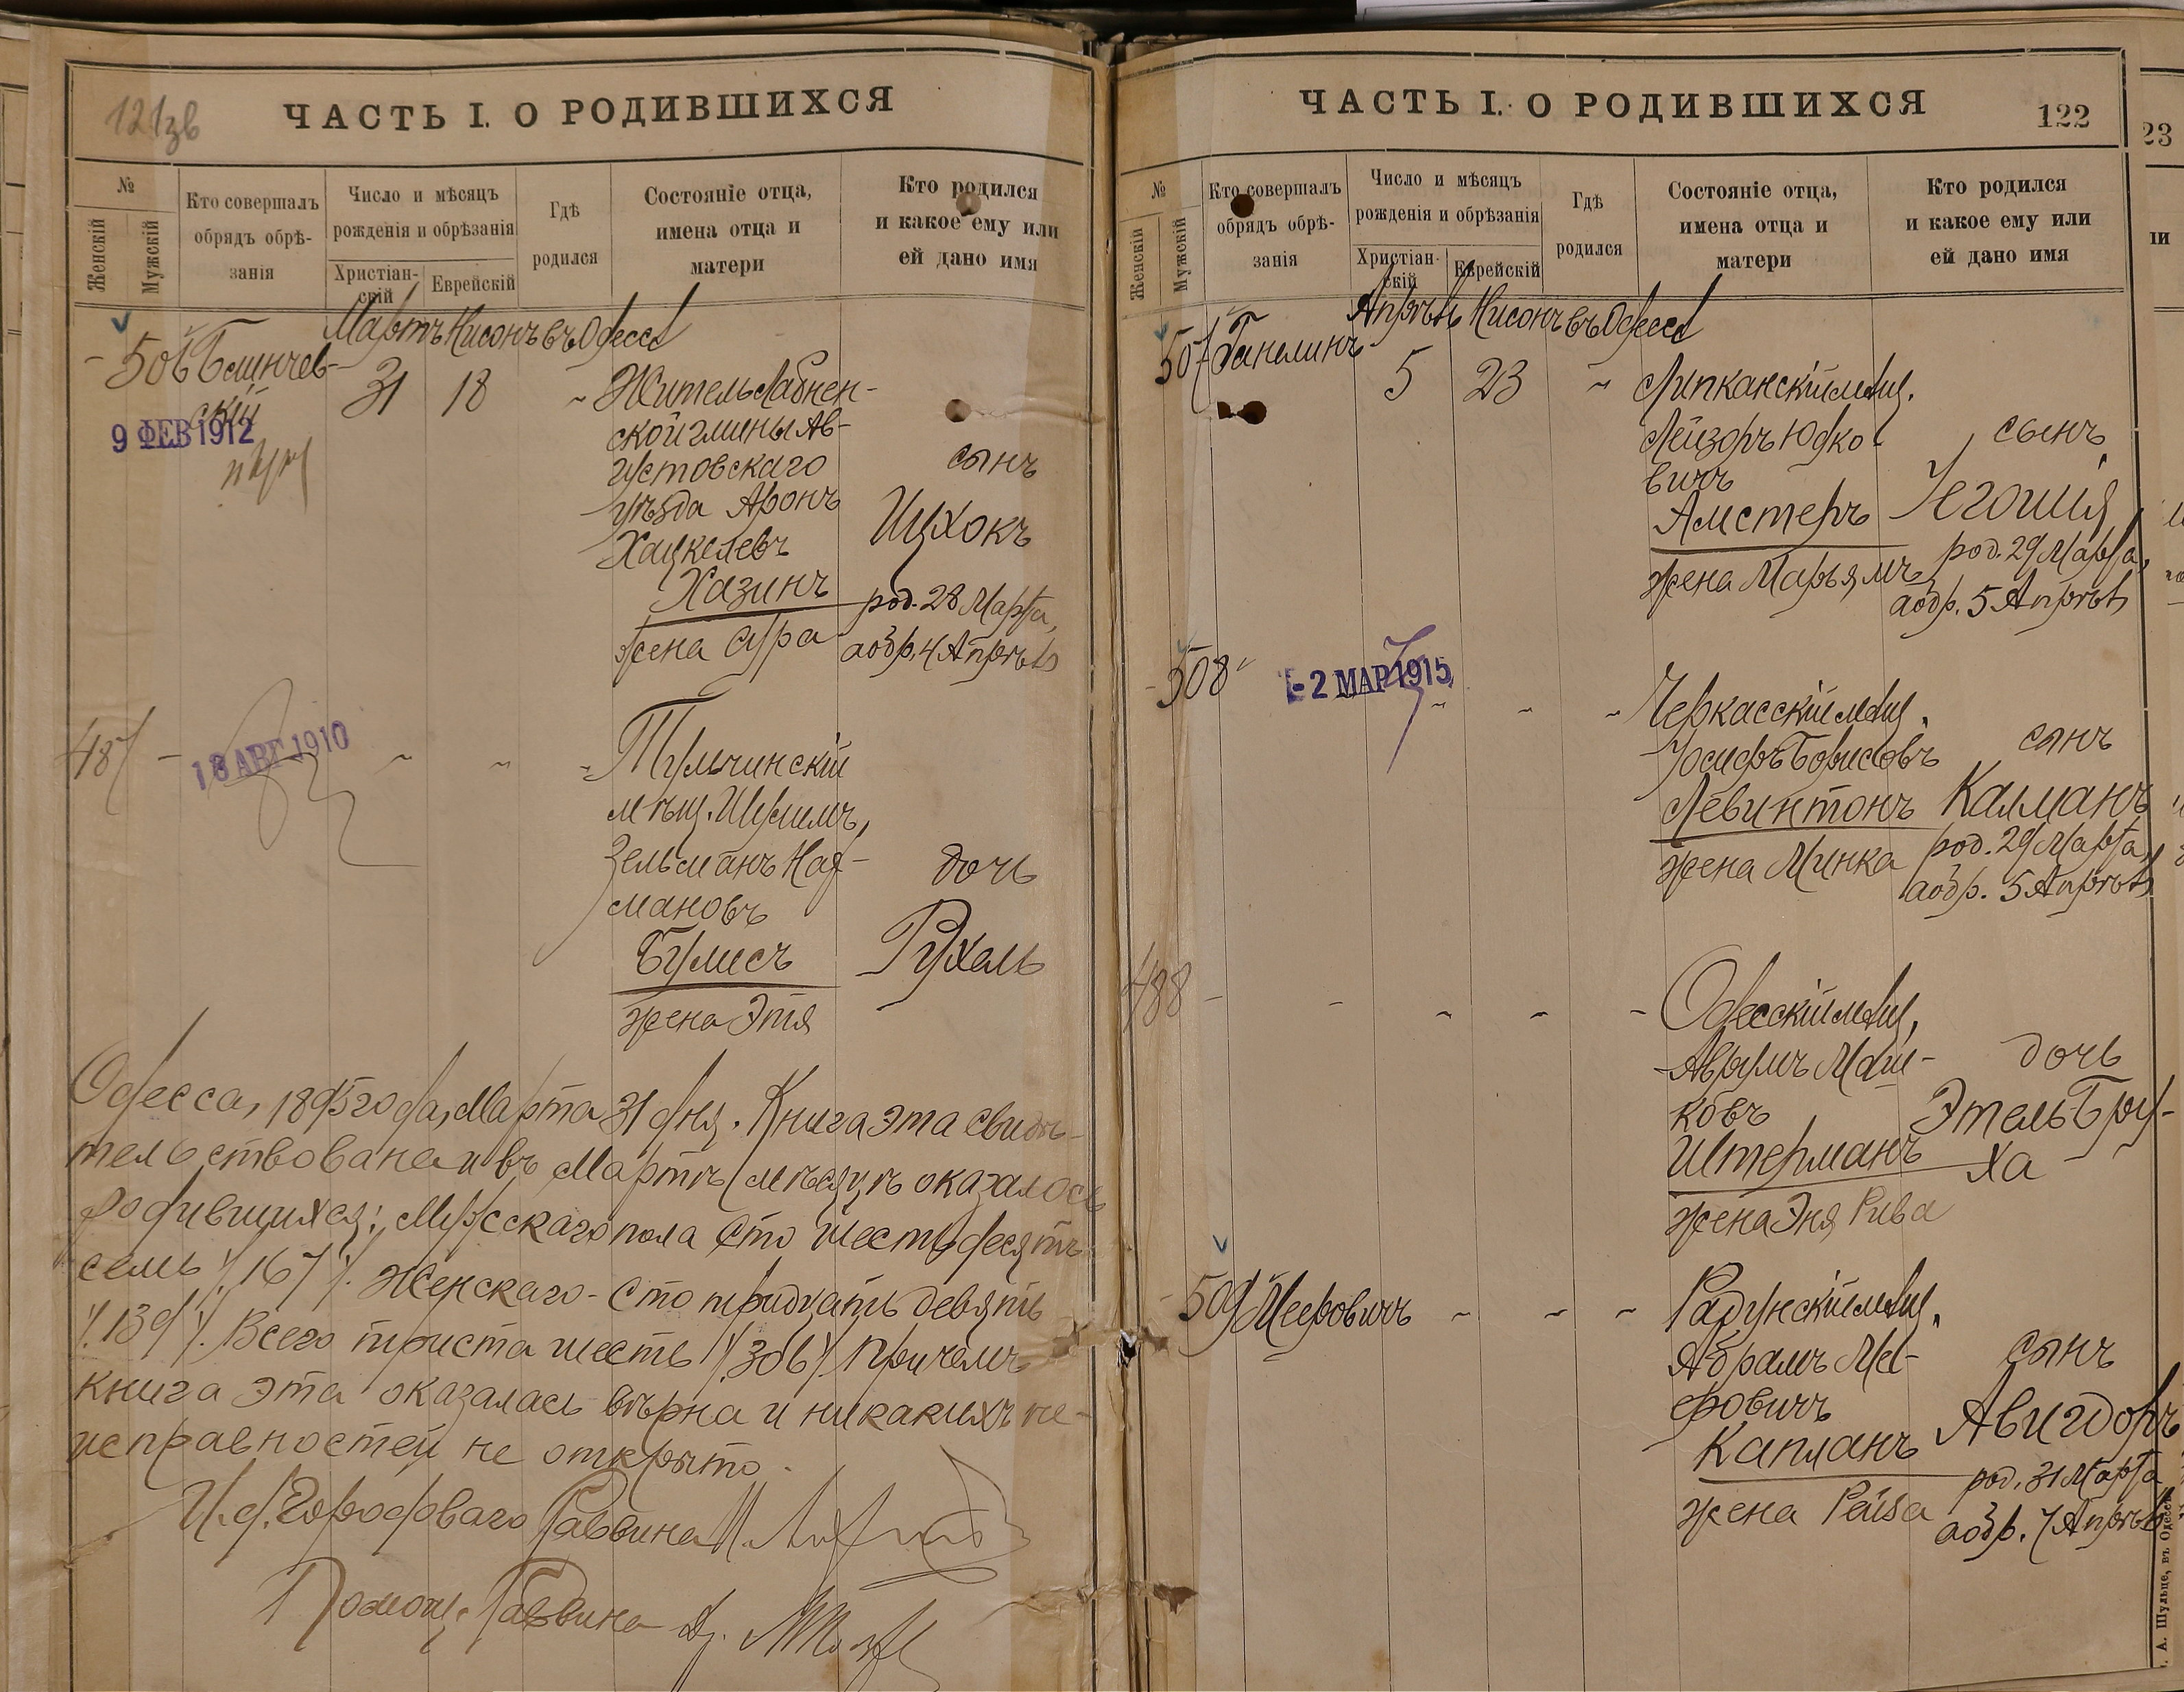 121зв
ЧАСТЬ I. О РОДИВШИХСЯ
№
Женскій
Мужскій
Кто совершалъ
обрядъ обрѣ-
занія
Число и мѣсяцъ
рожденія и обрѣзанія
Христіан-
скій
Еврейскій
Гдѣ
родился
Состояніе отца,
имена отца и
матери
Кто родился
и какое ему или
ей дано имя
Мартъ Нисонъ въ Одессѣ
506 Блинчев-
скій
31 18
9 ФЕВ 1912
Житель Лабнен-
ской глины Ав-
густовскаго
уѣзда Аронъ
Хацкелевъ
Хазинъ
жена Сура
сынъ
Ицхокъ
род. 28 Марта,
аобр. 4 Апрѣль
487
18 АВГ 1910
Тульчинскій
мѣщ. Шулимъ,
Зельманъ Нах-
мановъ
Булисъ
жена Этя
дочь
Рухель
Одесса, 1895 года, Марта 31 дня. Книга эта свидѣ-
тельствована и въ Мартѣ мѣсяцѣ оказалось
родившихся: Мужскаго пола Сто шестьдесятъ
семь /167/. Женскаго - Сто тридцать девять
/139/. Всего триста шесть /306/ причемъ
книга эта оказалась вѣрна и никакихъ не-
исправностей не открыто.
И. д. Городоваго Раввина
Помощ. Раввина
ЧАСТЬ I. О РОДИВШИХСЯ
122
№
Женскій
Мужскій
Кто совершалъ
обрядъ обрѣ-
занія
Число и мѣсяцъ
рожденія и обрѣзанія
Христіан-
скій
Еврейскій
Гдѣ
родился
Состояніе отца,
имена отца и
матери
Кто родился
и какое ему или
ей дано имя
Апрѣль Нисонъ въ Одессѣ
507 Ганелинъ
5 23
Липканскій мѣщ.
Лейзоръ Юдко-
вичъ
Амстеръ
жена Марьямъ
сынъ
Іегошія
род. 29 Марта,
аобр. 5 Апрѣль
508
2 МАР 1915
Черкасскій мѣщ.
Іосифъ Борисовъ
Левинтонъ
жена Минка
сынъ
Калманъ
род. 29 Марта,
аобр. 5 Апрѣль
488
Одесскій мѣщ.
Аврумъ Маш-
ковъ
Штерманъ
жена Эня Рива
дочь
Этель Бру-
ха
509 Меировичъ
Радунскій мѣщ.
Абрамъ Меи-
ровичъ
Капланъ
жена Рейза
сынъ
Авигдоръ
род. 31 Марта
аобр. 7 Апрѣль
А. Шульце, въ Одессѣ
23